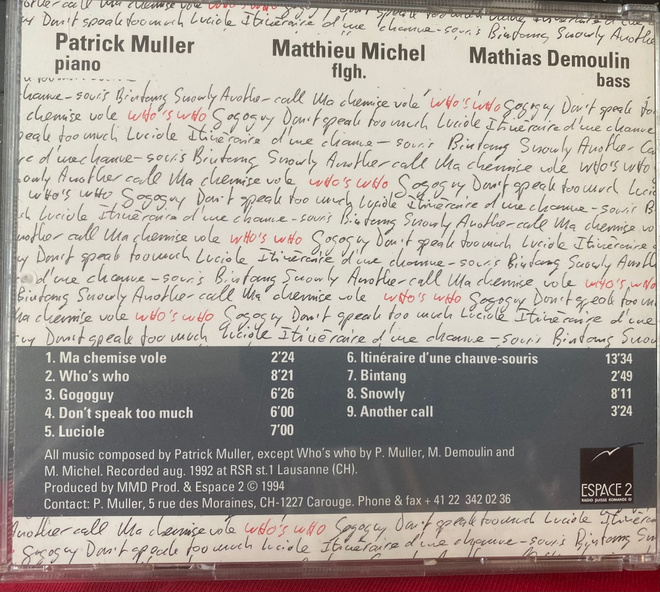 other call Ma chemise vole
guy Don't speak too much Luciole Itinéraire d'une chauve-souris Bintang Snowly Anothe
Patrick Muller
piano
Matthieu Michel
flgh.
Mathias Demoulin
bass
chauve-souris Bintang Snowly Another call Ma chemise vole who's who Gogoguy Don't speak to
chemise vole who's who Gogoguy Don't speak too much Luciole Itinéraire d'une chauve
peak too much Luciole Itinéraire d'une chauve-souris Bintang Snowly Another Ca
re d'une chauve-souris Bintang Snowly Another call Ma chemise vole who's who
owly Another call Ma chemise vole who's who Gogoguy Don't speak too much Luci
who's who Gogoguy Don't speak too much Luciole Itinéraire d'une chauve-souris B
ch Luciole Itinéraire d'une chauve-souris Bintang Snowly Another call Ma chemise vo
nother call Ma chemise vole who's who Gogoguy Don't speak too much Luciole Itinéraire
y Don't speak too much Luciole Itinéraire d'une chauve-souris Bintang Snowly Anoth
d'une chauve-souris Bintang Snowly Another call Ma chemise vole who's who
Bintang Snowly Another call Ma chemise vole who's who Gogoguy Don't speak too mu
Ma chemise vole who's who Gogoguy Don't speak too much Luciole Itinéraire d'une
guy Don't speak too much Luciole Itinéraire d'une chauve-souris Bintang Snow
1. Ma chemise vole 2'24
2. Who's who 8'21
3. Gogoguy 6'26
4. Don't speak too much 6'00
5. Luciole 7'00
6. Itinéraire d'une chauve-souris 13'34
7. Bintang 2'49
8. Snowly 8'11
9. Another call 3'24
All music composed by Patrick Muller, except Who's who by P. Muller, M. Demoulin and
M. Michel. Recorded aug. 1992 at RSR st.1 Lausanne (CH).
Produced by MMD Prod. & Espace 2 © 1994
Contact: P. Muller, 5 rue des Moraines, CH-1227 Carouge. Phone & fax + 41 22 342 02 36
ESPACE 2
RADIO SUISSE ROMANDE
Another call Ma chemise vole who's who Gogoguy Don't speak too much Luciole Itinérai
Gogoguy Don't speak too much Luciole Itinéraire d'une chauve-souris Bintang Sn